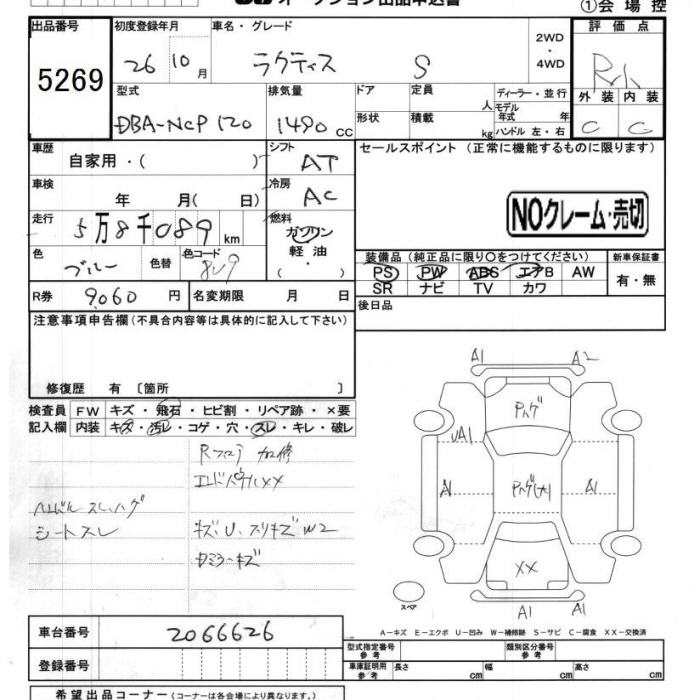 オークション出品申込書
①会場控
出品番号
5269
初度登録年月
26 10月
車名・グレード
ラクティス S
2WD
・
4WD
評価点
外装 内装
C C
型式
DBA-NCP 120
排気量
1490 cc
ドア
形状
定員 人
積載 kg
ディーラー・並行
モデル年式 年
ハンドル 左・右
車歴
自家用・( )
シフト
AT
セールスポイント (正常に機能するものに限ります)
車検
年 月( 日)
冷房
AC
NOクレーム・売切
走行
5万8千089 km
燃料
ガソリン
軽油
・
色
ブルー
色替
色コード
8U9
装備品 (純正品に限り○をつけてください)
PS PW ABS エアB AW
SR ナビ TV カワ
新車保証書
有・無
R券
9,060 円
名変期限 月 日
後日品
注意事項申告欄(不具合内容等は具体的に記入して下さい)
修復歴 有 〔箇所 〕
検査員
記入欄
FW キズ・飛石・ヒビ割・リペア跡・×要
内装 キズ・汚レ・コゲ・穴・スレ・キレ・破レ
Rフロア 加修
エンドパネルXX
ハンドル スレ、ハゲ
シートスレ
キズ、U、スリキズ W2
A1 A2
A1
A1
A1
XX
A1
A1
スペア
A－キズ E－エクボ U－凹み W－補修跡 S－サビ C－腐食 XX－交換済
車台番号
2066626
登録番号
型式指定番号
参考
類別区分番号
参考
車庫証明用
参考
長さ cm
幅 cm
高さ cm
希望出品コーナー(コーナーは各会場により異なります。)